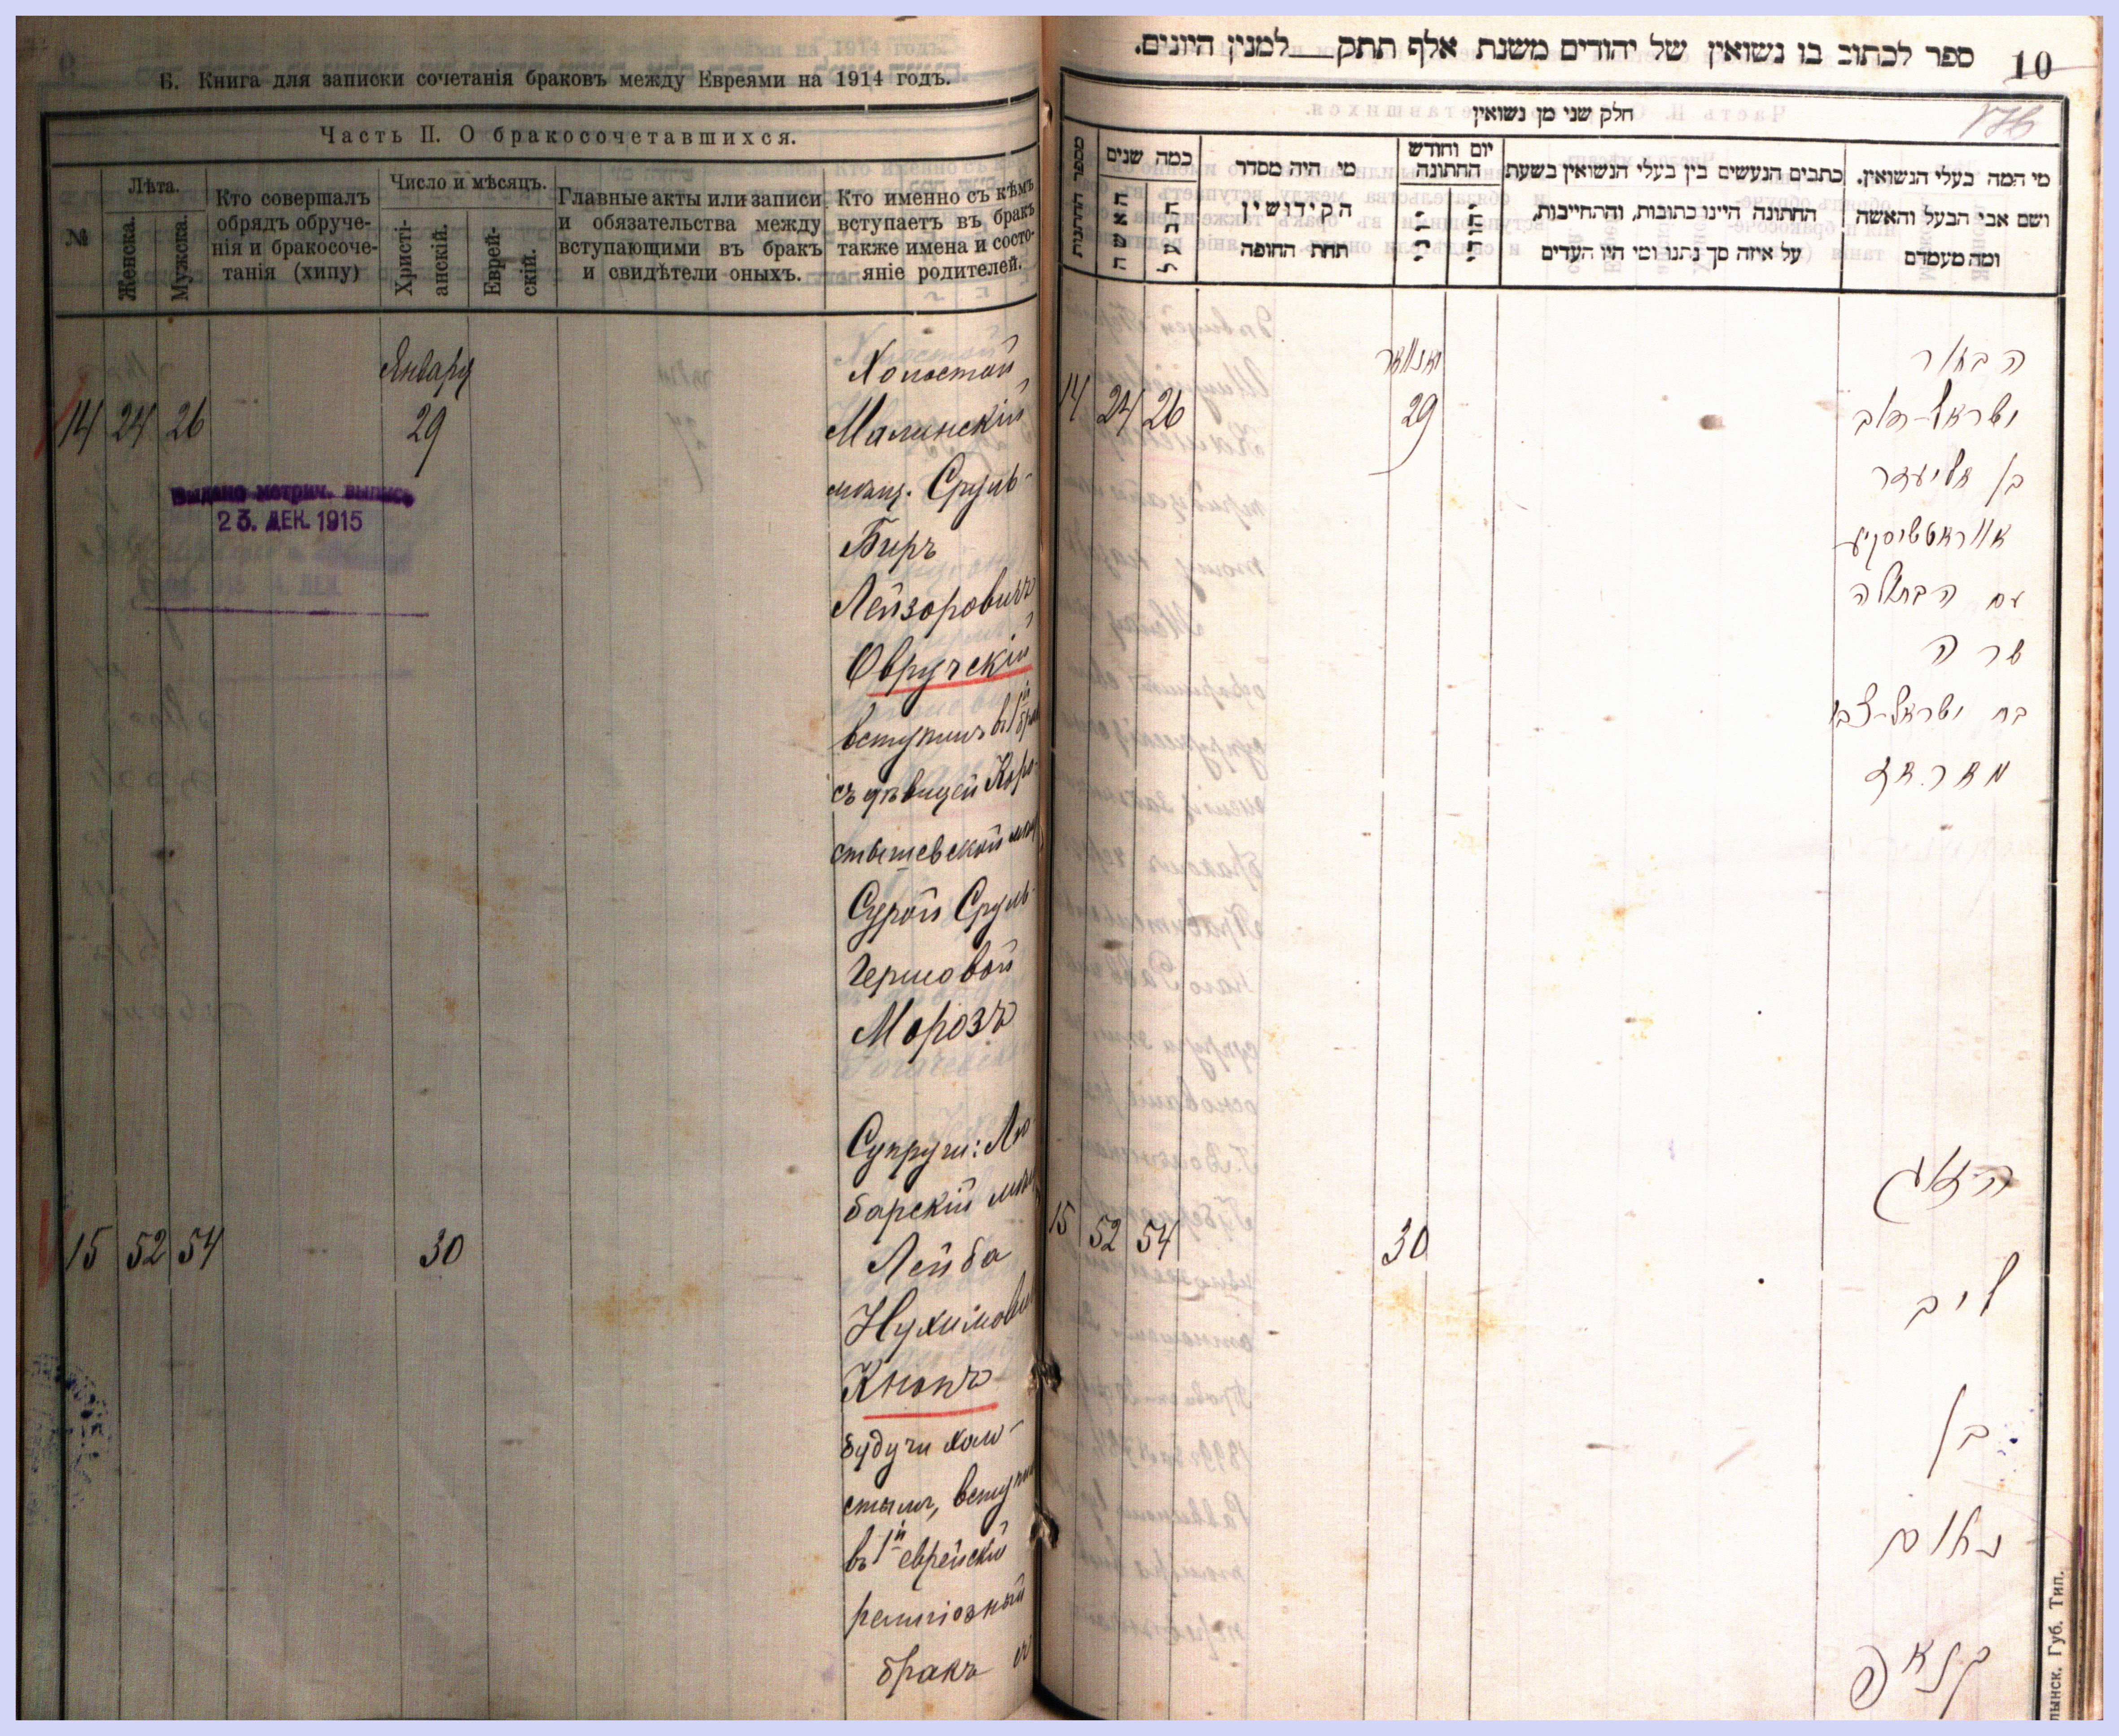 Б. Книга для записки сочетанія браковъ между Евреями на 1914 годъ.
Часть II. О бракосочетавшихся.
№
Лѣта.
Женска.
Мужска.
Кто совершалъ
обрядъ обруче-
нія и бракосоче-
танія (хипу)
Число и мѣсяцъ.
Христі-
анскій.
Еврей-
скій.
Главные акты или записи
и обязательства между
вступающими въ бракъ
и свидѣтели оныхъ.
Кто именно съ кѣмъ
вступаетъ въ бракъ
также имена и состо-
яніе родителей.
Январу
14 24 26 29
Выдано метрич. выпись
23. ДЕК. 1915
Холостой
Малинскій
мѣщ. Сруль-
Беръ
Лейзоровичъ
Овручскій
вступилъ въ 1й бра
съ дѣвицей Коро-
стышевской мѣщ
Сурой Сруль-
Гершовой
Морозъ
15 52 54 30
Супруги: Лю
барскій мѣщ
Лейба
Нухимови
Кнопъ
будучи холо-
стымъ, вступил
въ 1й еврейскій
религіозный
бракъ съ
10
ספר לכתוב בו נשואין של יהודים משנת אלף תתק למנין היונים.
חלק שני מן נשואין
מספר החתנות
כמה שנים
האשה
הבעל
מי היה מסדר
הקידושין
תחת החופה
יום וחודש
החתונה
כתבים הנעשים בין בעלי הנשואין בשעת
החתונה היינו כתובות, והתחייבות,
על איזה סך נתנו ומי היו העדים
מי המה בעלי הנשואין.
ושם אבי הבעל והאשה
ומה מעמדם
יאנוואר
14 24 26 29
הבחור
ישראל-דוב
בן אליעזר
עם הבתולה
שרה
בת ישראל-צבי
מאראז
15 52 54 30
הזוג
ליב
בן
נחום
קנאפ
лынск. Губ. Тип.